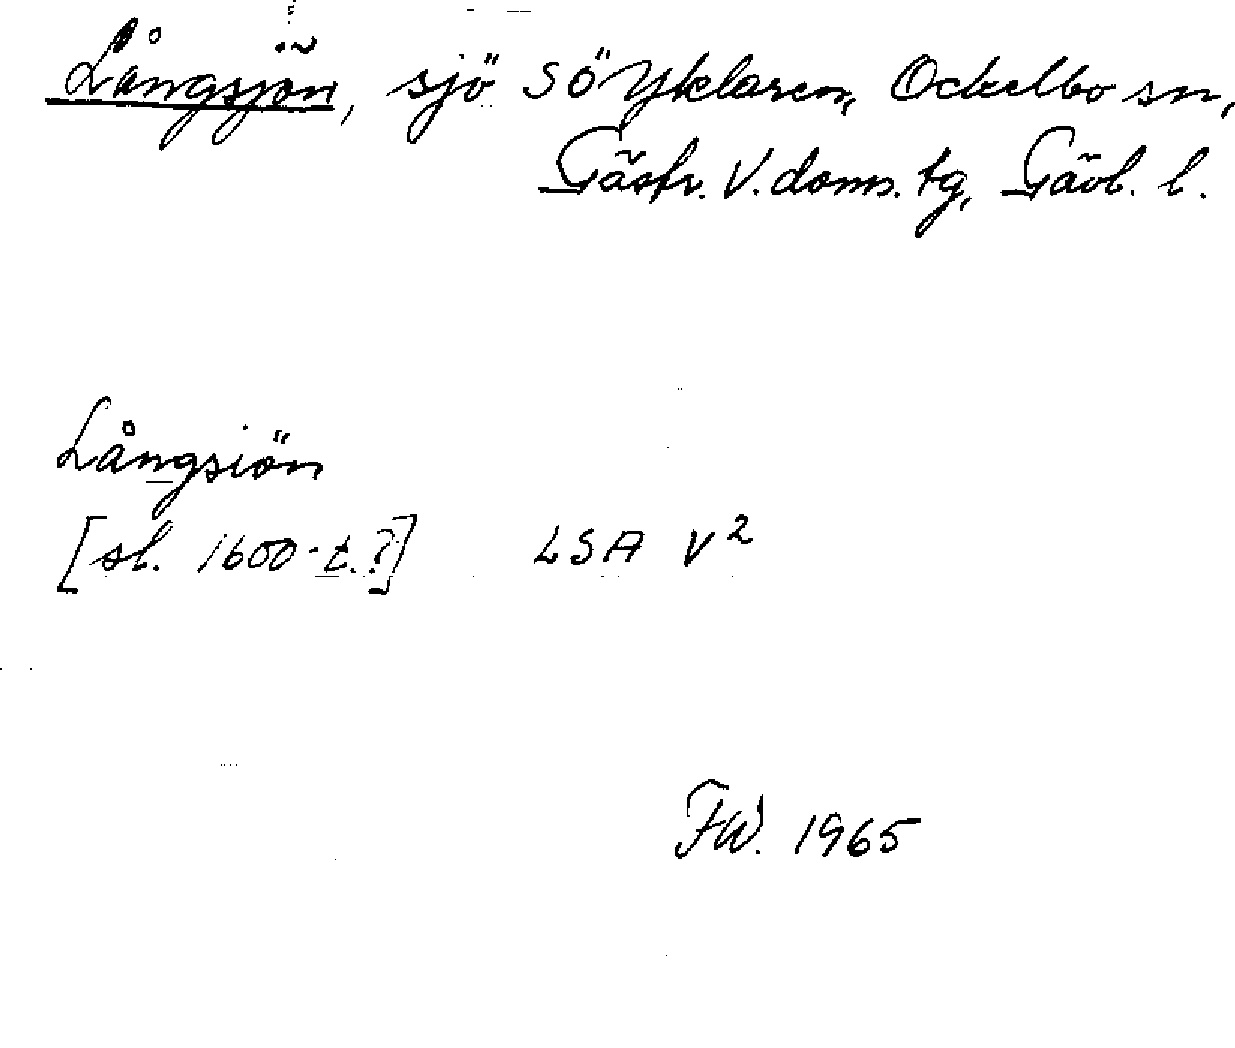 Långsjön, sjö SÖ Yklaren, Ockelbo sn,
Gästr. V. doms. tg, Gävl. l.
Långsiön
[sl. 1600-t.?] LSA V²
FW. 1965